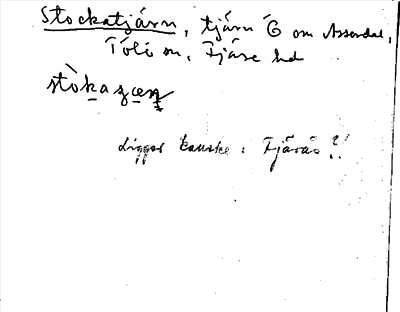 Stockatjärn, tjärn Ö om Asserdal,
Tölö sn, Fjäre hd
stòkaꝫæɳ
Ligger kanske i Fjärås?!